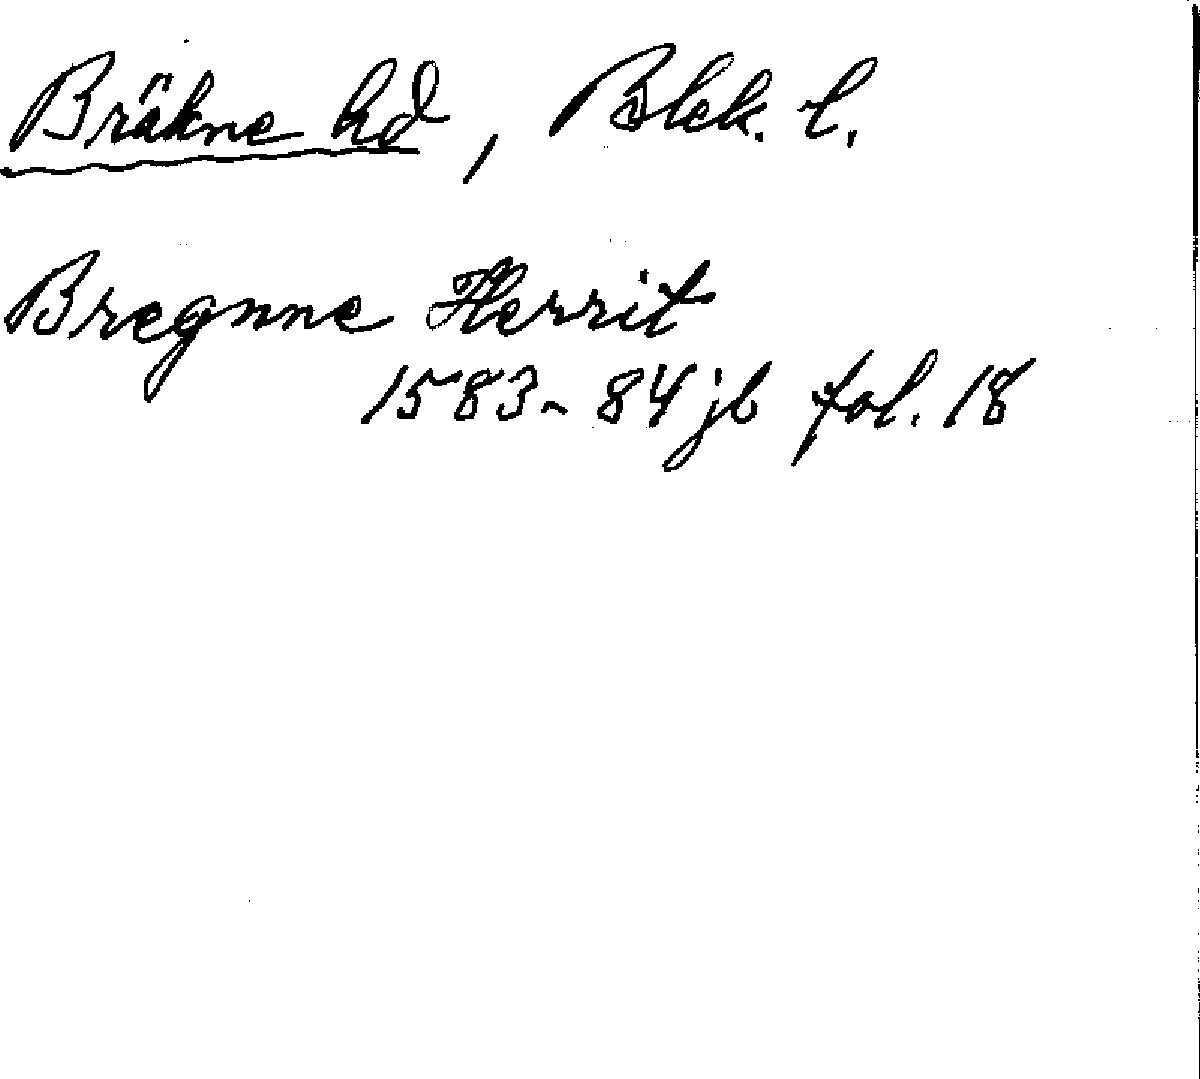 Bräkne hd, Blek. l.
Bregnne Herrit
1583-84 jb fol. 18